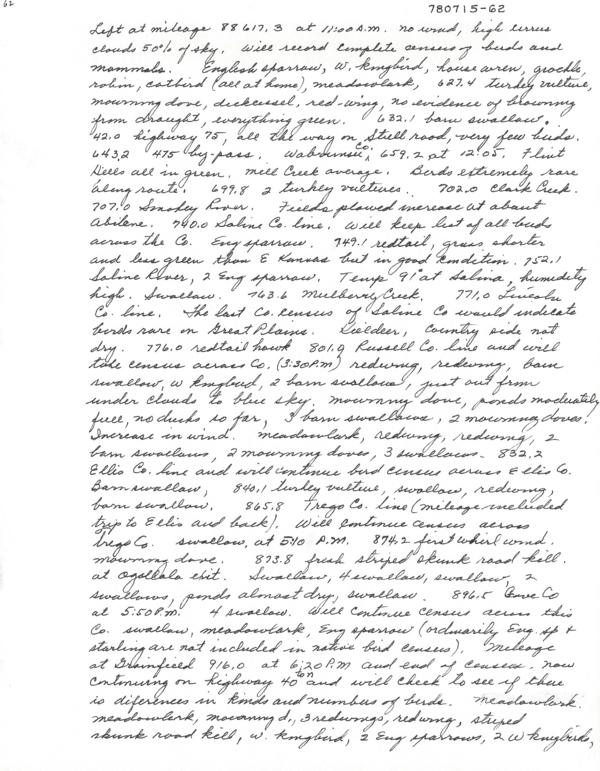 62
780715-62
Left at mileage 88617.3 at 11:00 A.M. no wind, high cirrus
clouds 50% of sky. Will record complete census of birds and
mammals. English sparrow, W. kingbird, house wren, grackle,
robin, catbird (all at home), meadowlark, 627.4 turkey vulture,
mourning dove, dickcissel, red-wing, no evidence of browning
from draught, everything green. 632.1 barn swallow.
42.0 highway 75, all the way on still road, very few birds.
643.2 475 by-pass. Wabaunsee Co. 659.2 at 12:05. Flint
Hills all in green. Mill Creek average. Birds extremely rare
along route. 699.8 2 turkey vultures. 702.0 Clark Creek.
707.0 Smokey River. Fields plowed increase at about
Abilene. 740.0 Saline Co. line. Will keep list of all birds
across the Co. Eng sparrow. 749.1 redtail, grass shorter
and less green than E Kansas but in good condition. 752.1
Saline River, 2 Eng sparrow. Temp 91° at Salina, humidity
high. Swallow. 763.6 Mulberry Creek. 771.0 Lincoln
Co. line. The last Co. census of Saline Co would indicate
birds rare on Great Plains. Killdeer, Country side not
dry. 776.0 redtail hawk 801.9 Russell Co. line and will
take census across Co. (3:30 P.M) redwing, redwing, barn
swallow, W kingbird, 2 barn swallows, just out from
under clouds to blue sky, mourning dove, ponds moderately
full, no ducks so far, 3 barn swallows, 2 mourning doves.
Increase in wind. Meadowlark, redwing, redwing, 2
barn swallows, 2 mourning doves, 3 swallows - 832.2
Ellis Co. line and will continue bird census across Ellis Co.
Barn swallow, 840.1 turkey vulture, swallow, redwing,
barn swallow. 865.8 Trego Co. line (mileage included
trip to Ellis and back). Will continue census across
Trego Co. swallow, at 5:10 P.M. 874.2 first whirl wind.
mourning dove. 873.8 fresh striped skunk road kill.
at Ogallala exit. Swallow, 4 swallow, swallow, 2
swallows, ponds almost dry, swallow. 896.5 Gove Co
at 5:50 P.M. 4 swallow. Will continue census across this
Co. swallow, meadowlark, Eng sparrow (ordinarily Eng. sp +
starling are not included in native bird census). Mileage
at Grainfield 916.0 at 6:20 P.M and end of census. now
continuing on highway 40 and will check to see if there
is diferences in kinds and numbers of birds. Meadowlark.
meadowlark, mourning d., 3 redwings, redwing, striped
skunk road kill, W. kingbird, 2 Eng sparrows, 2 W kingbirds,